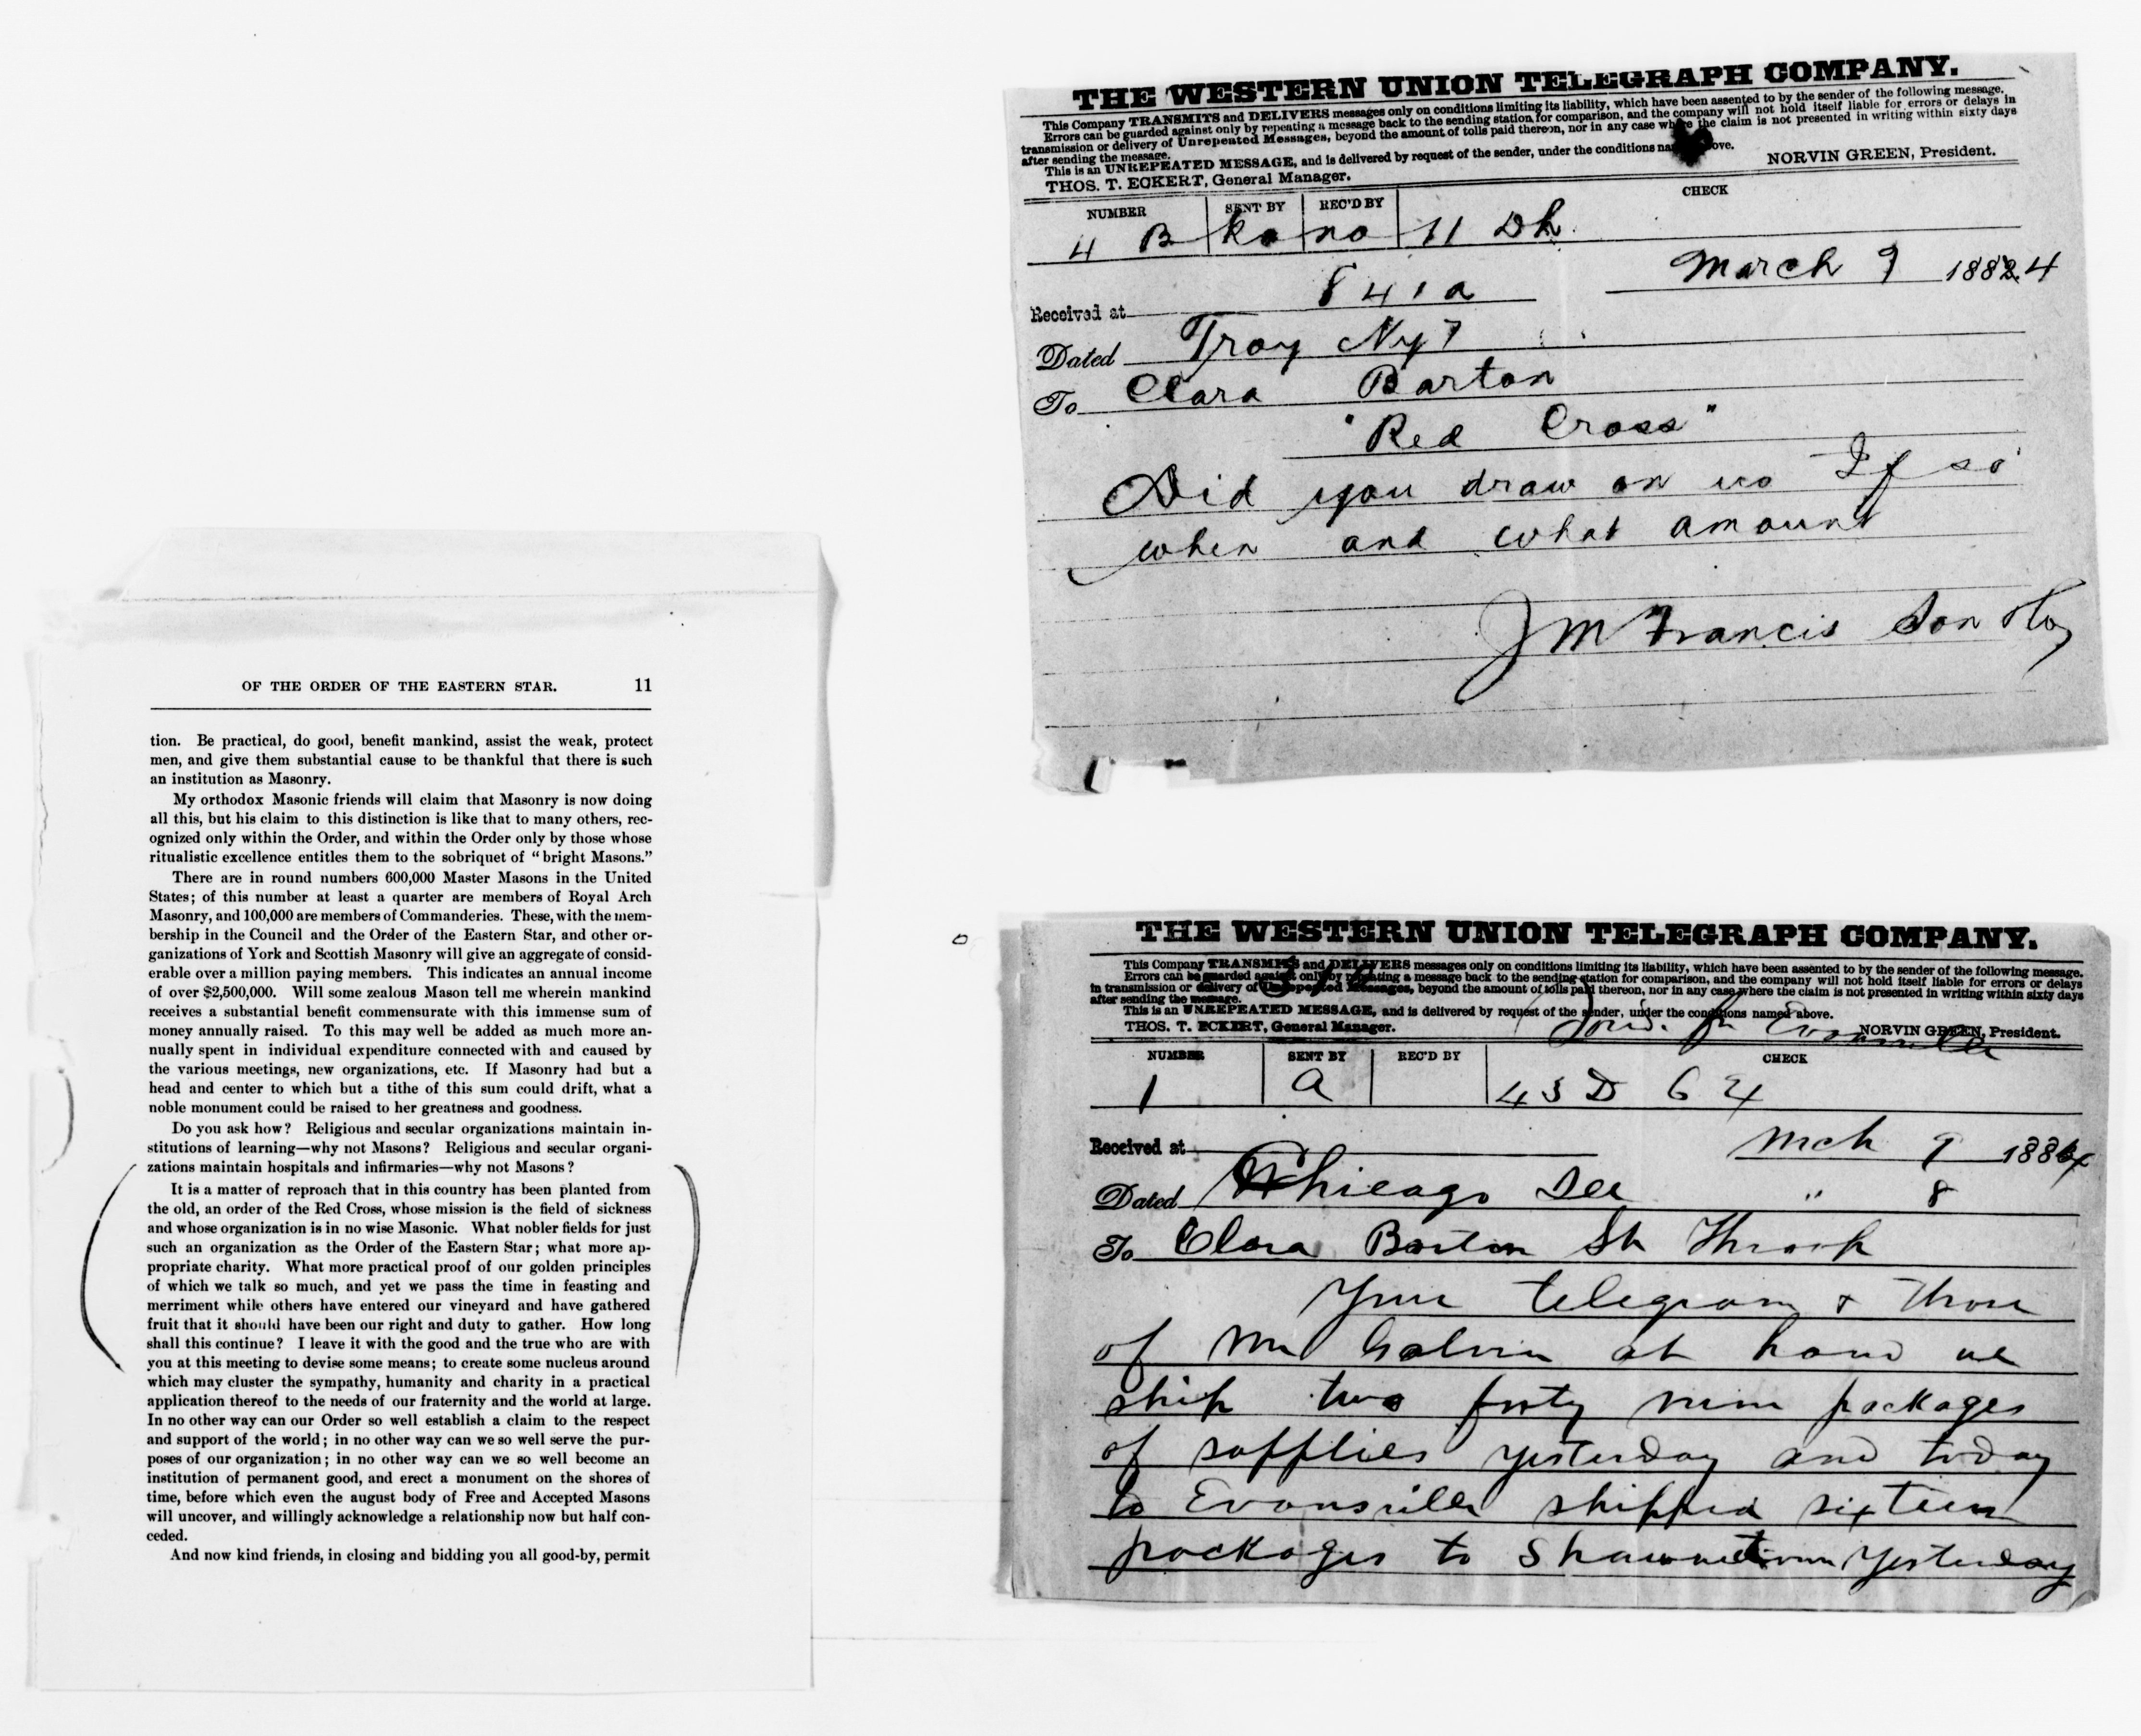 OF THE ORDER OF THE EASTERN STAR. 11
tion. Be practical, do good, benefit mankind, assist the weak, protect
men, and give them substantial cause to be thankful that there is such
an institution as Masonry.
My orthodox Masonic friends will claim that Masonry is now doing
all this, but his claim to this distinction is like that to many others, rec-
ognized only within the Order, and within the Order only by those whose
ritualistic excellence entitles them to the sobriquet of "bright Masons."
There are in round numbers 600,000 Master Masons in the United
States; of this number at least a quarter are members of Royal Arch
Masonry, and 100,000 are members of Commanderies. These, with the mem-
bership in the Council and the Order of the Eastern Star, and other or-
ganizations of York and Scottish Masonry will give an aggregate of consid-
erable over a million paying members. This indicates an annual income
of over $2,500,000. Will some zealous Mason tell me wherein mankind
receives a substantial benefit commensurate with this immense sum of
money annually raised. To this may well be added as much more an-
nually spent in individual expenditure connected with and caused by
the various meetings, new organizations, etc. If Masonry had but a
head and center to which but a tithe of this sum could drift, what a
noble monument could be raised to her greatness and goodness.
Do you ask how? Religious and secular organizations maintain in-
stitutions of learning—why not Masons? Religious and secular organi-
zations maintain hospitals and infirmaries—why not Masons?
It is a matter of reproach that in this country has been planted from
the old, an order of the Red Cross, whose mission is the field of sickness
and whose organization is in no wise Masonic. What nobler fields for just
such an organization as the Order of the Eastern Star; what more ap-
propriate charity. What more practical proof of our golden principles
of which we talk so much, and yet we pass the time in feasting and
merriment while others have entered our vineyard and have gathered
fruit that it should have been our right and duty to gather. How long
shall this continue? I leave it with the good and the true who are with
you at this meeting to devise some means; to create some nucleus around
which may cluster the sympathy, humanity and charity in a practical
application thereof to the needs of our fraternity and the world at large.
In no other way can our Order so well establish a claim to the respect
and support of the world; in no other way can we so well serve the pur-
poses of our organization; in no other way can we so well become an
institution of permanent good, and erect a monument on the shores of
time, before which even the august body of Free and Accepted Masons
will uncover, and willingly acknowledge a relationship now but half con-
ceded.
And now kind friends, in closing and bidding you all good-by, permit
THE WESTERN UNION TELEGRAPH COMPANY.
This Company TRANSMITS and DELIVERS messages only on conditions limiting its liability, which have been assented to by the sender of the following message.
Errors can be guarded against only by repeating a message back to the sending station for comparison, and the company will not hold itself liable for errors or delays in
transmission or delivery of Unrepeated Messages, beyond the amount of tolls paid thereon, nor in any case where the claim is not presented in writing within sixty days
after sending the message.
This is an UNREPEATED MESSAGE, and is delivered by request of the sender, under the conditions named above.
THOS. T. ECKERT, General Manager. NORVIN GREEN, President.
NUMBER SENT BY REC'D BY CHECK
4 B Ka no 11 Dh
March 9 1884
Received at 841a
Dated Troy Ny 7
To Clara Barton
"Red Cross"
Did you draw on us If so
when and what amount
J M Francis Son
THE WESTERN UNION TELEGRAPH COMPANY.
This Company TRANSMITS and DELIVERS messages only on conditions limiting its liability, which have been assented to by the sender of the following message.
Errors can be guarded against only by repeating a message back to the sending station for comparison, and the company will not hold itself liable for errors or delays
in transmission or delivery of Unrepeated Messages, beyond the amount of tolls paid thereon, nor in any case where the claim is not presented in writing within sixty days
after sending the message.
This is an UNREPEATED MESSAGE, and is delivered by request of the sender, under the conditions named above.
THOS. T. ECKERT, General Manager. NORVIN GREEN, President.
NUMBER SENT BY REC'D BY CHECK
1 a 43 D 64
Received at Mch 9 1884
Dated Chicago Ills " 8
To Clara Barton Str Throop
Your telegram & those
of Mr Galvin at hand we
ship two forty nine packages
of supplies yesterday and today
to Evansville shipped sixteen
packages to Shawneetown yesterday